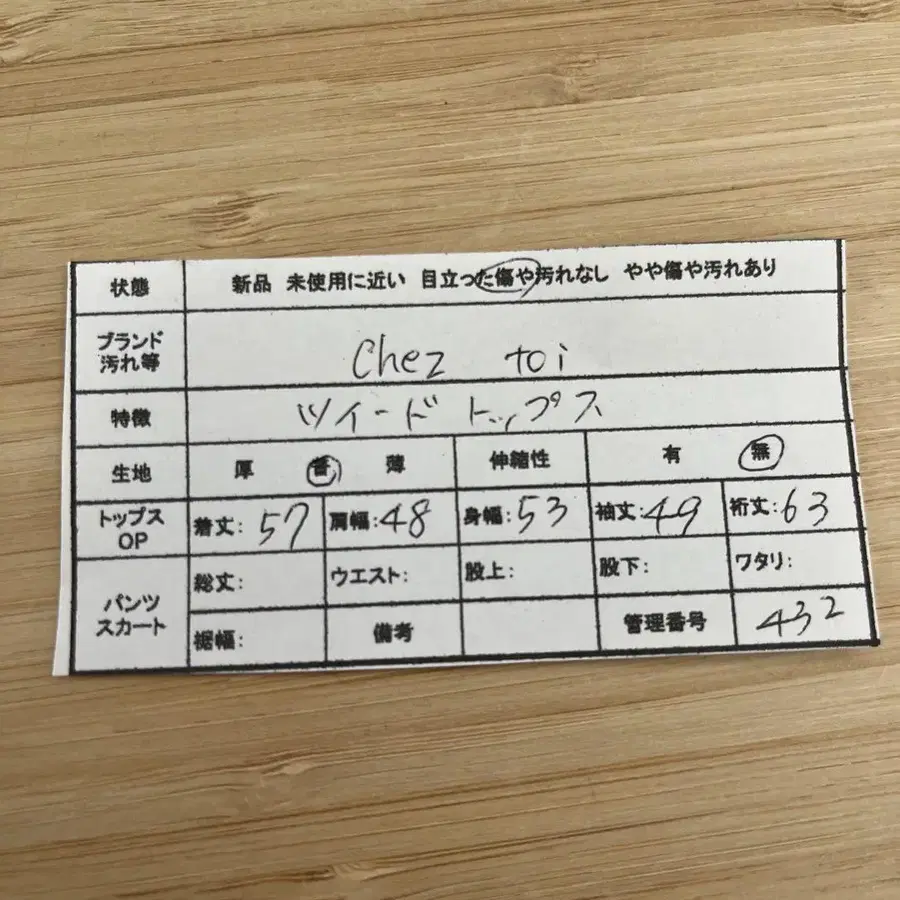 状態 新品 未使用に近い 目立った傷や汚れなし やや傷や汚れあり
ブランド
汚れ等
Chez toi
特徴 ツイード トップス
生地 厚 普 薄 伸縮性 有 無
トップス
OP
着丈: 57 肩幅: 48 身幅: 53 袖丈: 49 裄丈: 63
パンツ
スカート
総丈: ウエスト: 股上: 股下: ワタリ:
裾幅: 備考 管理番号 432